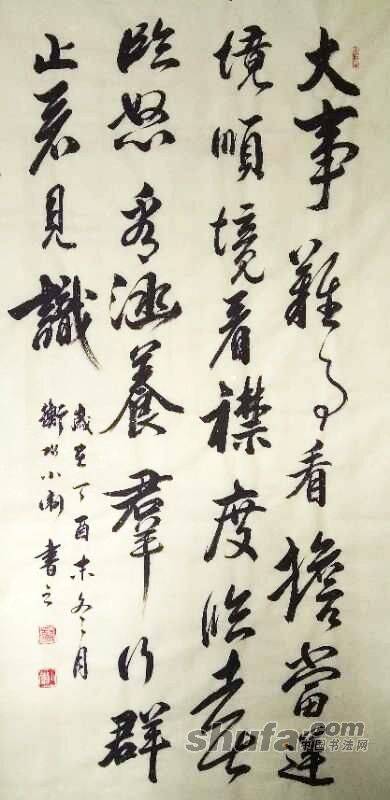 大事難事看擔當逆
境順境看襟度臨喜
臨怒看涵養羣行群
止看見識
丁酉末冬
月
衡水小
書之
shufa.com
中国书法网